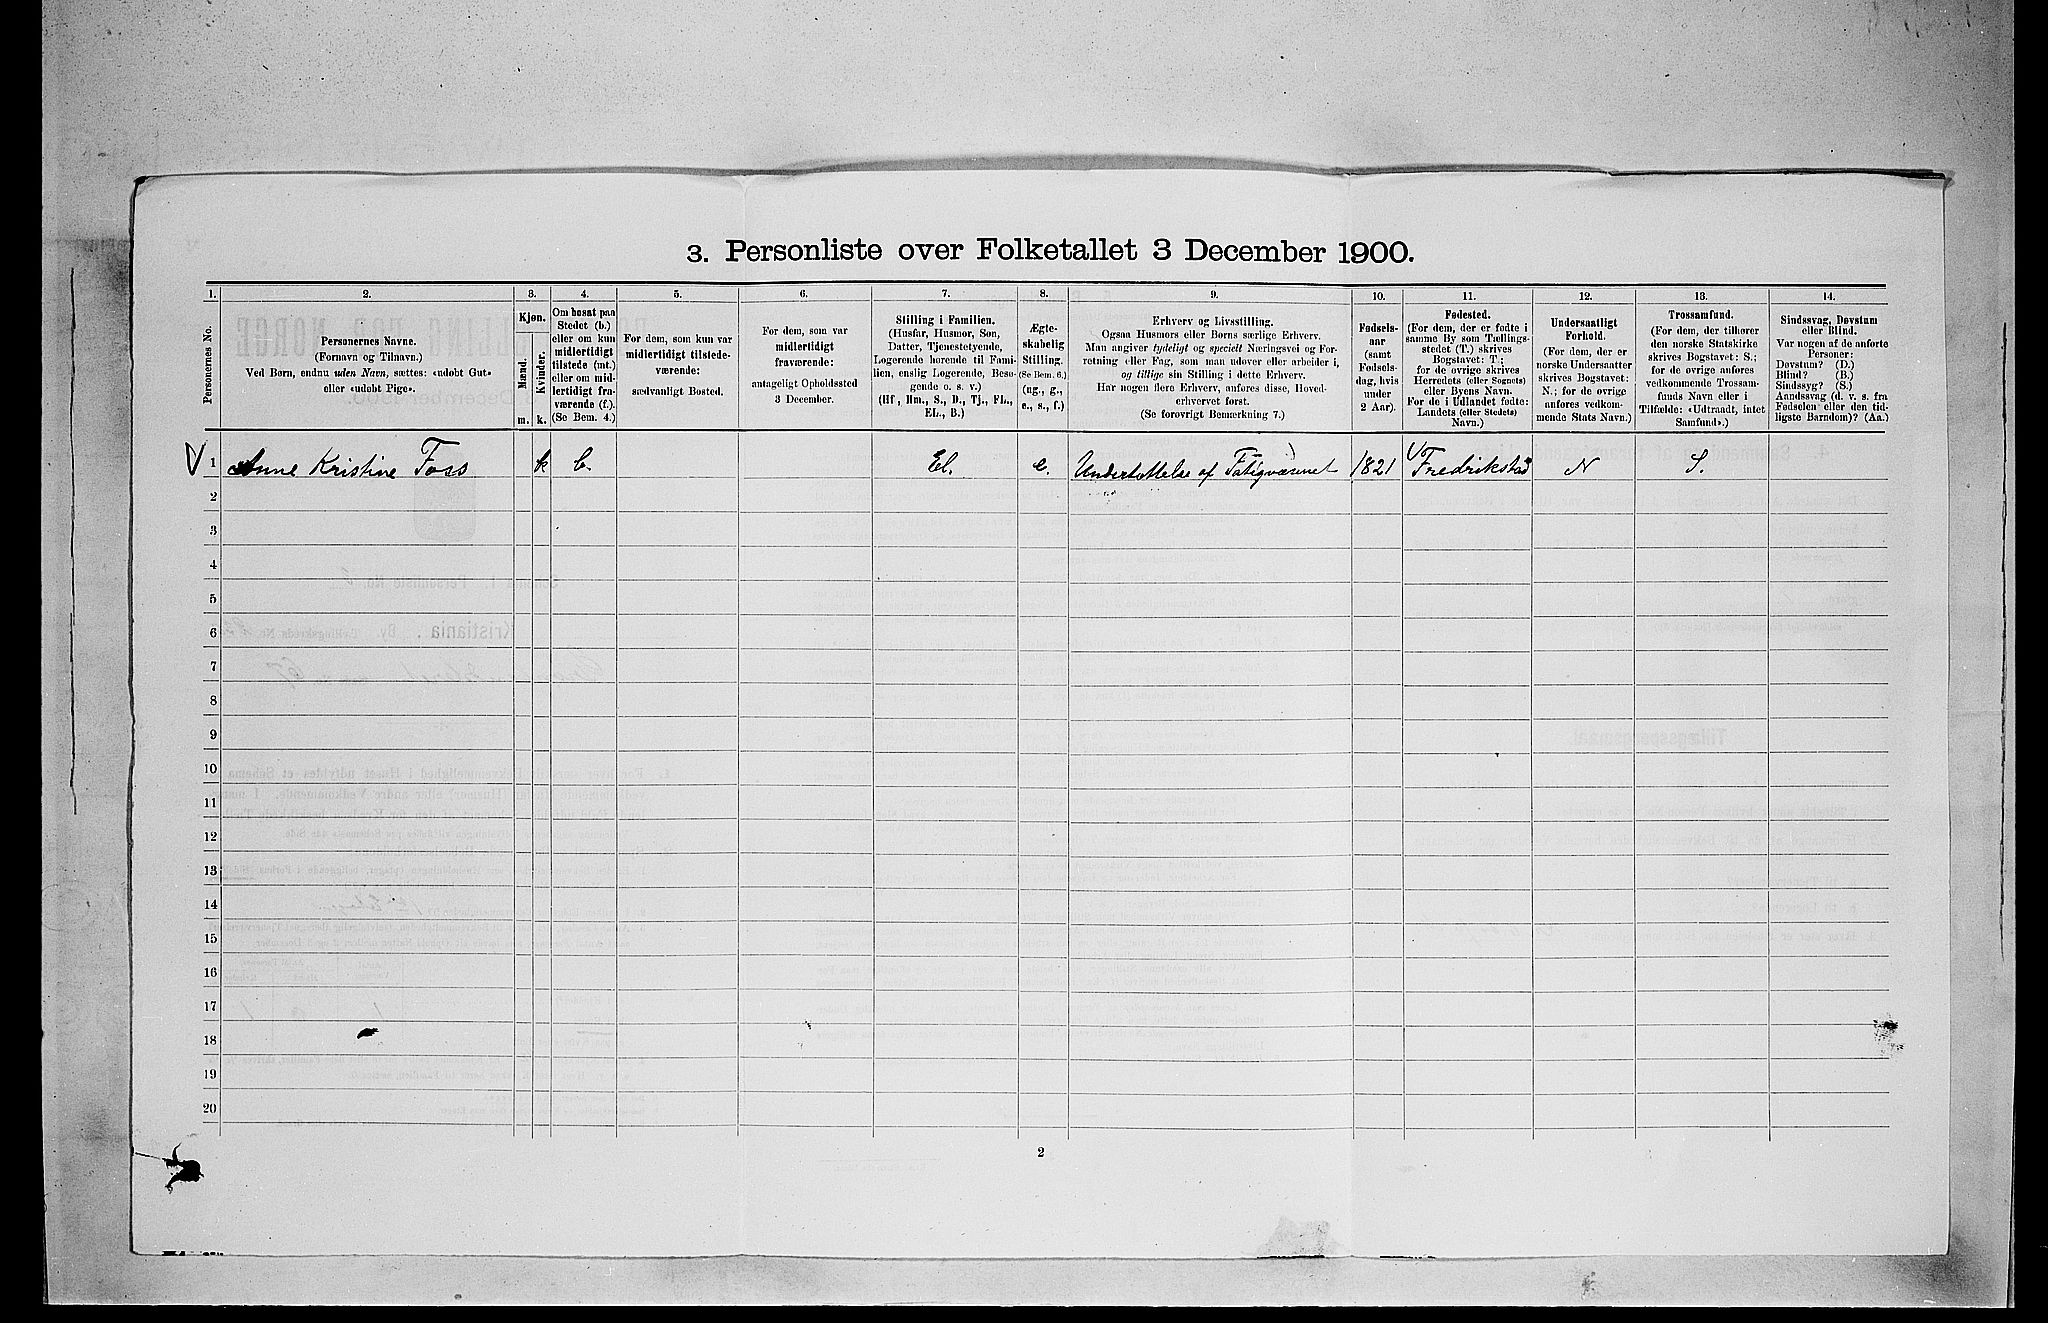 3. Personliste over Folketallet 3 December 1900.
1.
Personernes No.
2.
Personernes Navne.
(Fornavn og Tilnavn.)
Ved Børn, endnu uden Navn, sættes: «udøbt Gut»
eller «udøbt Pige».
3.
Kjøn.
Mænd.
Kvinder.
m. k.
4.
Om bosat paa
Stedet (b.)
eller om kun
midlertidigt
tilstede (mt.)
eller om mid-
lertidigt fra-
værende (f.).
(Se Bem. 4.)
5.
For dem, som kun var
midlertidigt tilstede-
værende:
sædvanligt Bosted.
6.
For dem, som var
midlertidigt
fraværende:
antageligt Opholdssted
3 December.
7.
Stilling i Familien.
(Husfar, Husmor, Søn,
Datter, Tjenestetyende,
Logerende hørende til Fami-
lien, enslig Logerende, Besø-
gende o. s. v.)
(Hf., Hm., S., D., Tj., FL.,
EL., B.)
8.
Ægte-
skabelig
Stilling.
(Se Bem. 6.)
(ug., g.,
e., s., f.)
9.
Erhverv og Livsstilling.
Ogsaa Husmors eller Børns særlige Erhverv.
Man angiver tydeligt og specielt Næringsvei og For-
retning eller Fag, som man udøver eller arbeider i,
og tillige sin Stilling i dette Erhverv.
Har nogen flere Erhverv, anføres disse, Hoved-
erhvervet først.
(Se forøvrigt Bemærkning 7.)
10.
Fødsels-
aar
(samt
Fødsels-
dag, hvis
under
2 Aar).
11.
Fødested.
(For dem, der er fødte i
samme By som Tællings-
stedet (T.) skrives
Bogstavet: T.;
for de øvrige skrives
Herredets (eller Sognets)
eller Byens Navn.
For de i Udlandet fødte:
Landets (eller Stedets)
Navn.)
12.
Undersaatligt
Forhold.
(For dem, der er
norske Undersaatter
skrives Bogstavet:
N.; for de øvrige
anføres vedkom-
mende Stats Navn.)
13.
Trossamfund.
(For dem, der tilhører
den norske Statskirke
skrives Bogstavet: S.;
for de øvrige anføres
vedkommende Trossam-
funds Navn eller i
Tilfælde: «Udtraadt, intet
Samfund».)
14.
Sindssvag, Døvstum
eller Blind.
Var nogen af de anførte
Personer:
Døvstum? (D.)
Blind? (B.)
Sindssyg? (S.)
Aandssvag (d. v. s. fra
Fødselen eller den tid-
ligste Barndom)? (Aa.)
1 Anne Kristine Foss k b. El. e. Understøttelse af Fatigvæsenet 1821 Fredrikstad N S.
2
3
4
5
6
7
8
9
10
11
12
13
14
15
16
17
18
19
20
2